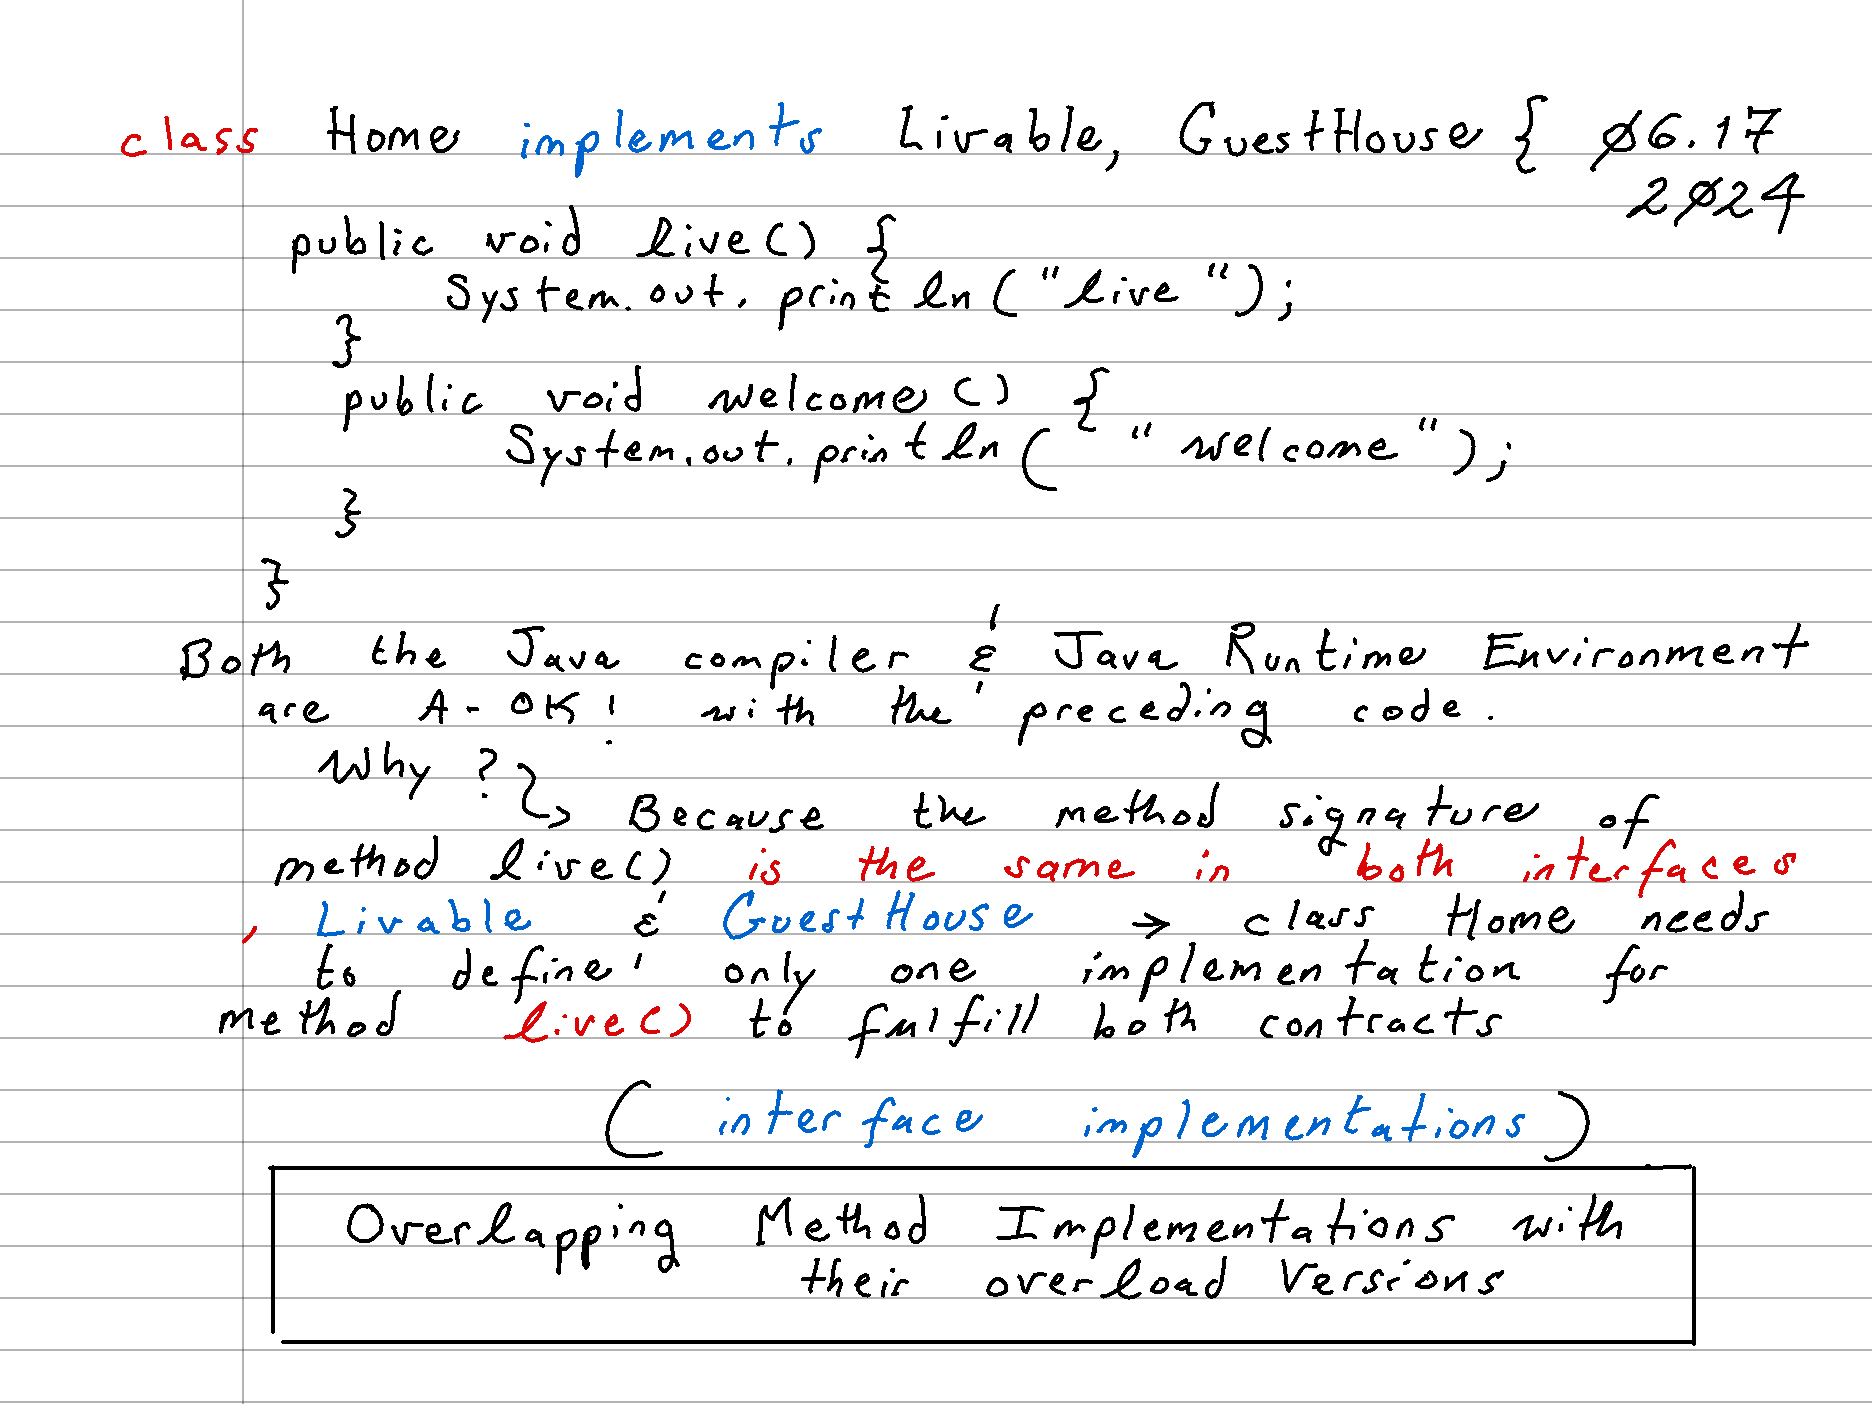 class Home implements Livable, GuestHouse { ø6.17
2ø24
public void live() {
System.out.println("live");
}
public void welcome() {
System.out.println("welcome");
}
}
Both the Java compiler & Java Runtime Environment
are A-OK! with the preceding code.
Why? ↳ Because the method signature of
method live() is the same in both interfaces
, Livable & GuestHouse → class Home needs
to define only one implementation for
method live() to fulfill both contracts
(interface implementations)
Overlapping Method Implementations with
their overload versions